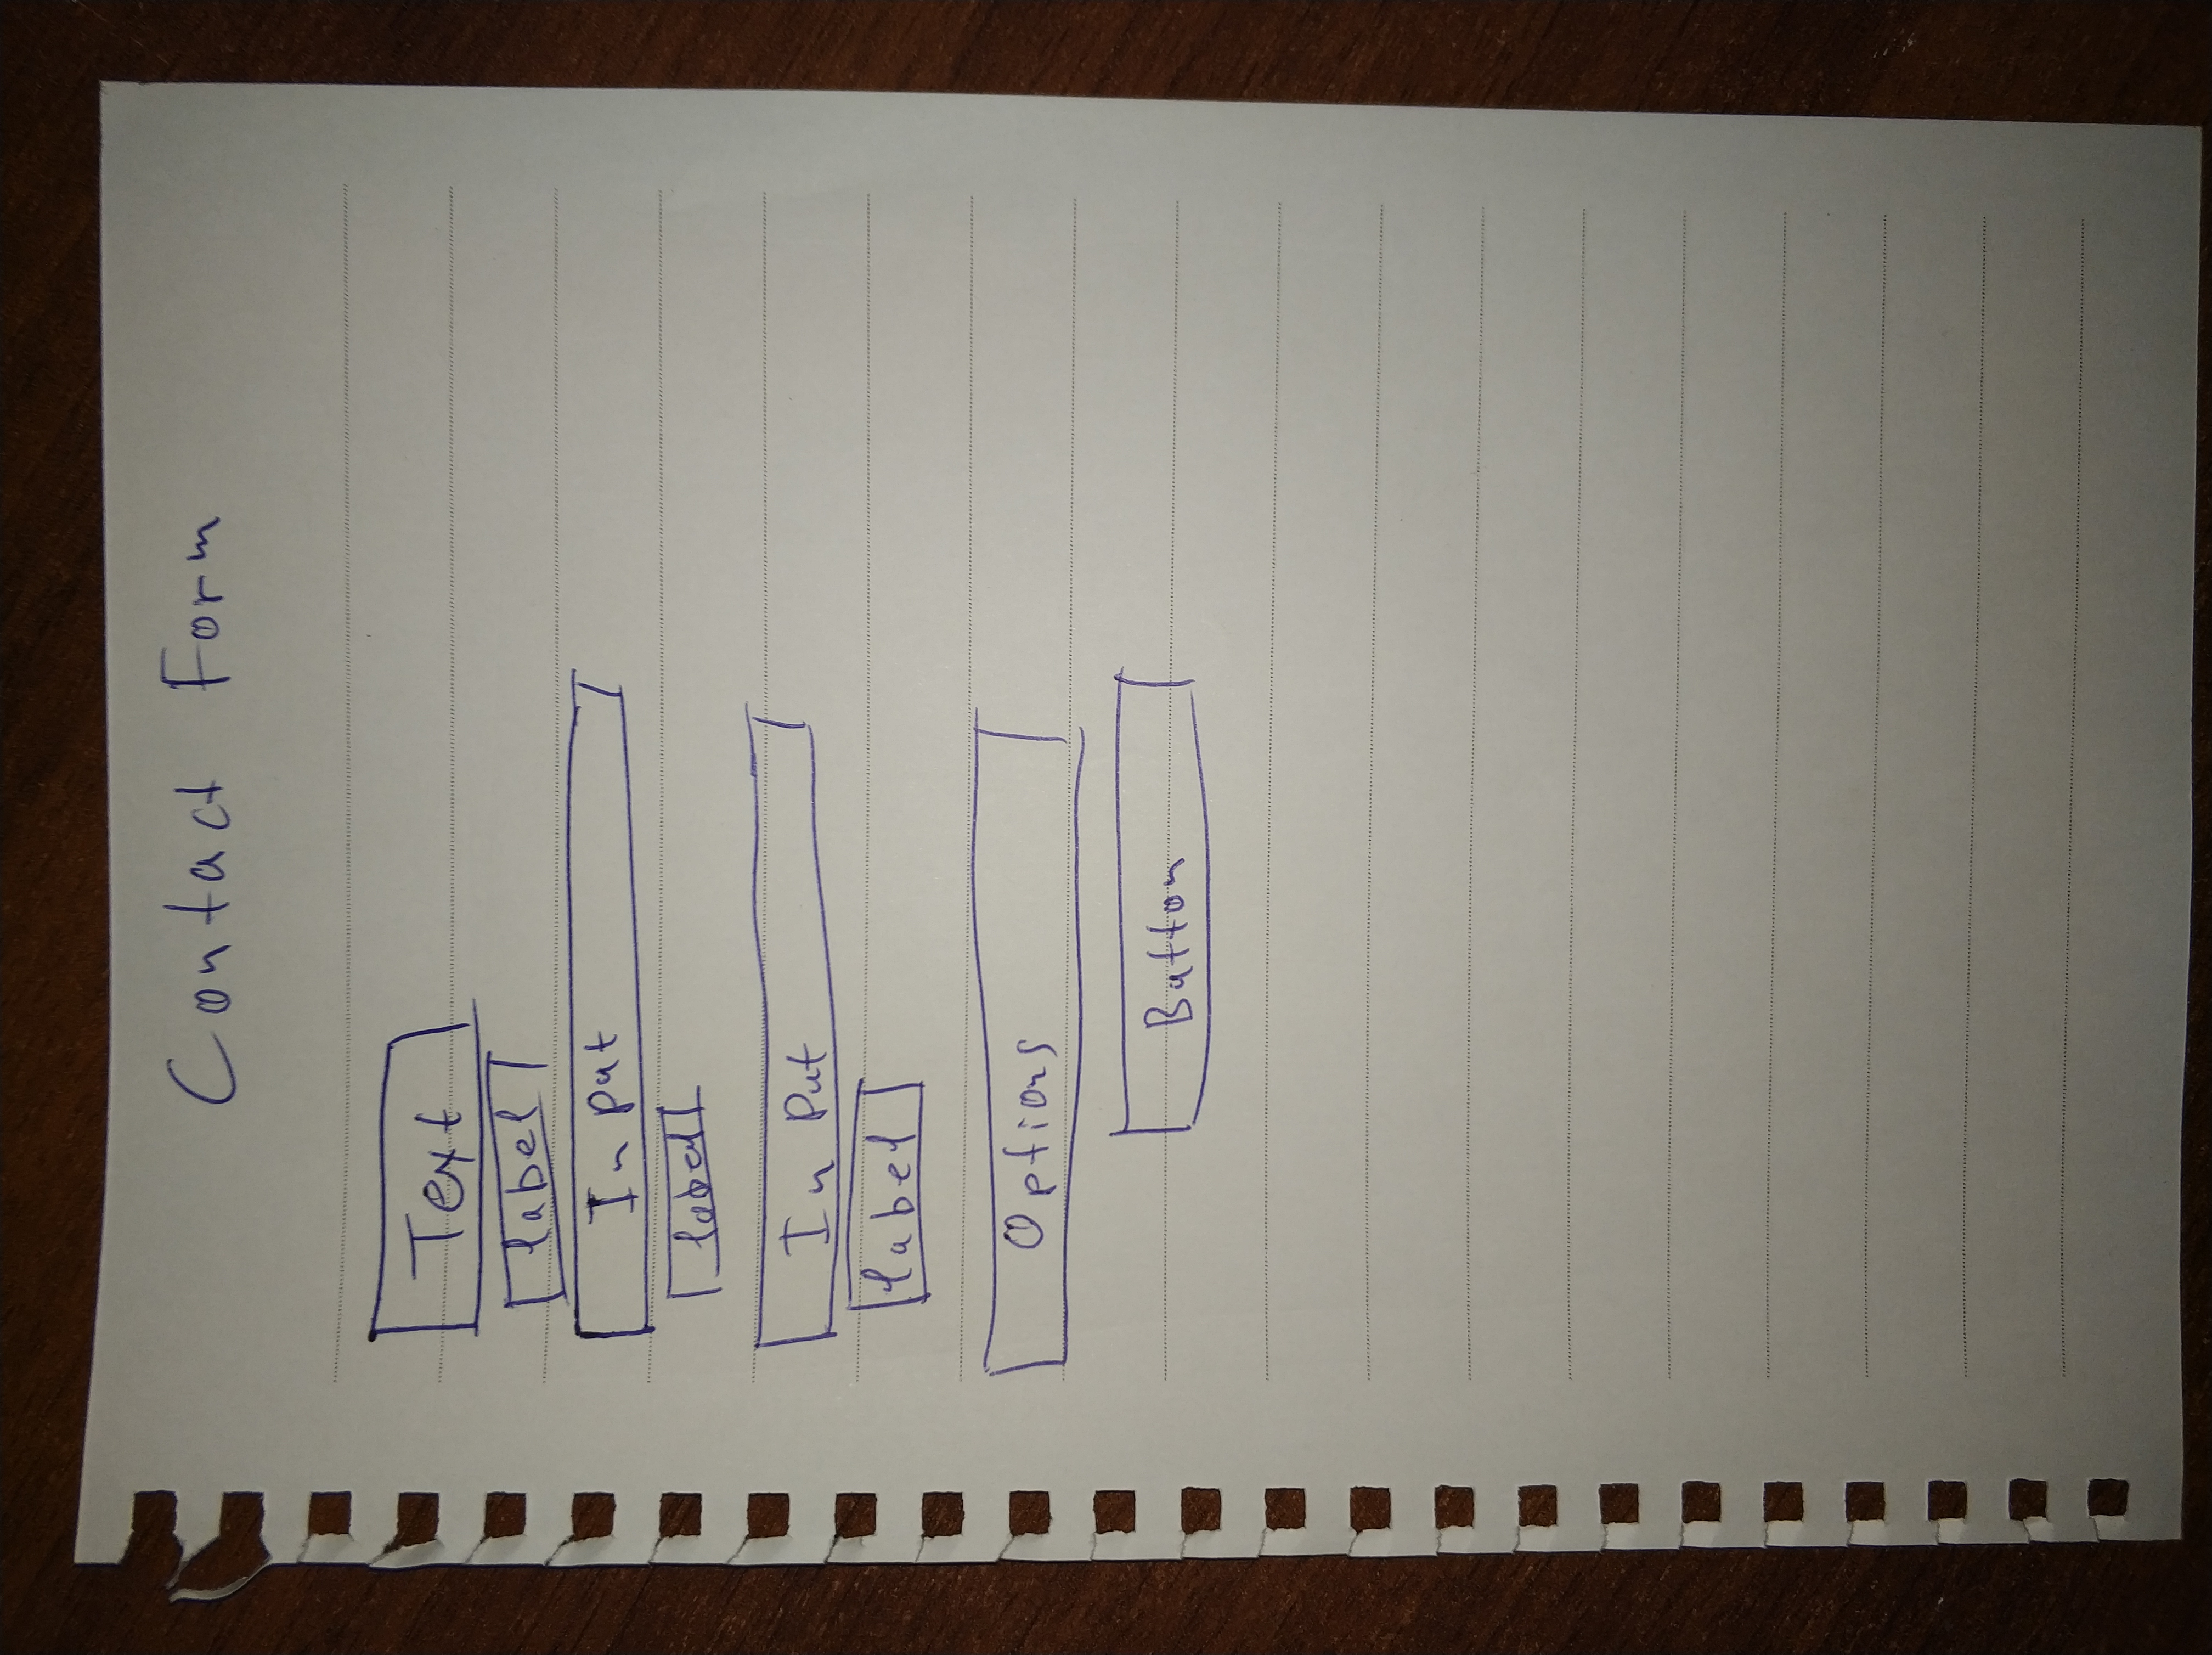 Contact Form
Text
label
Input
label
Input
label
Options
Button